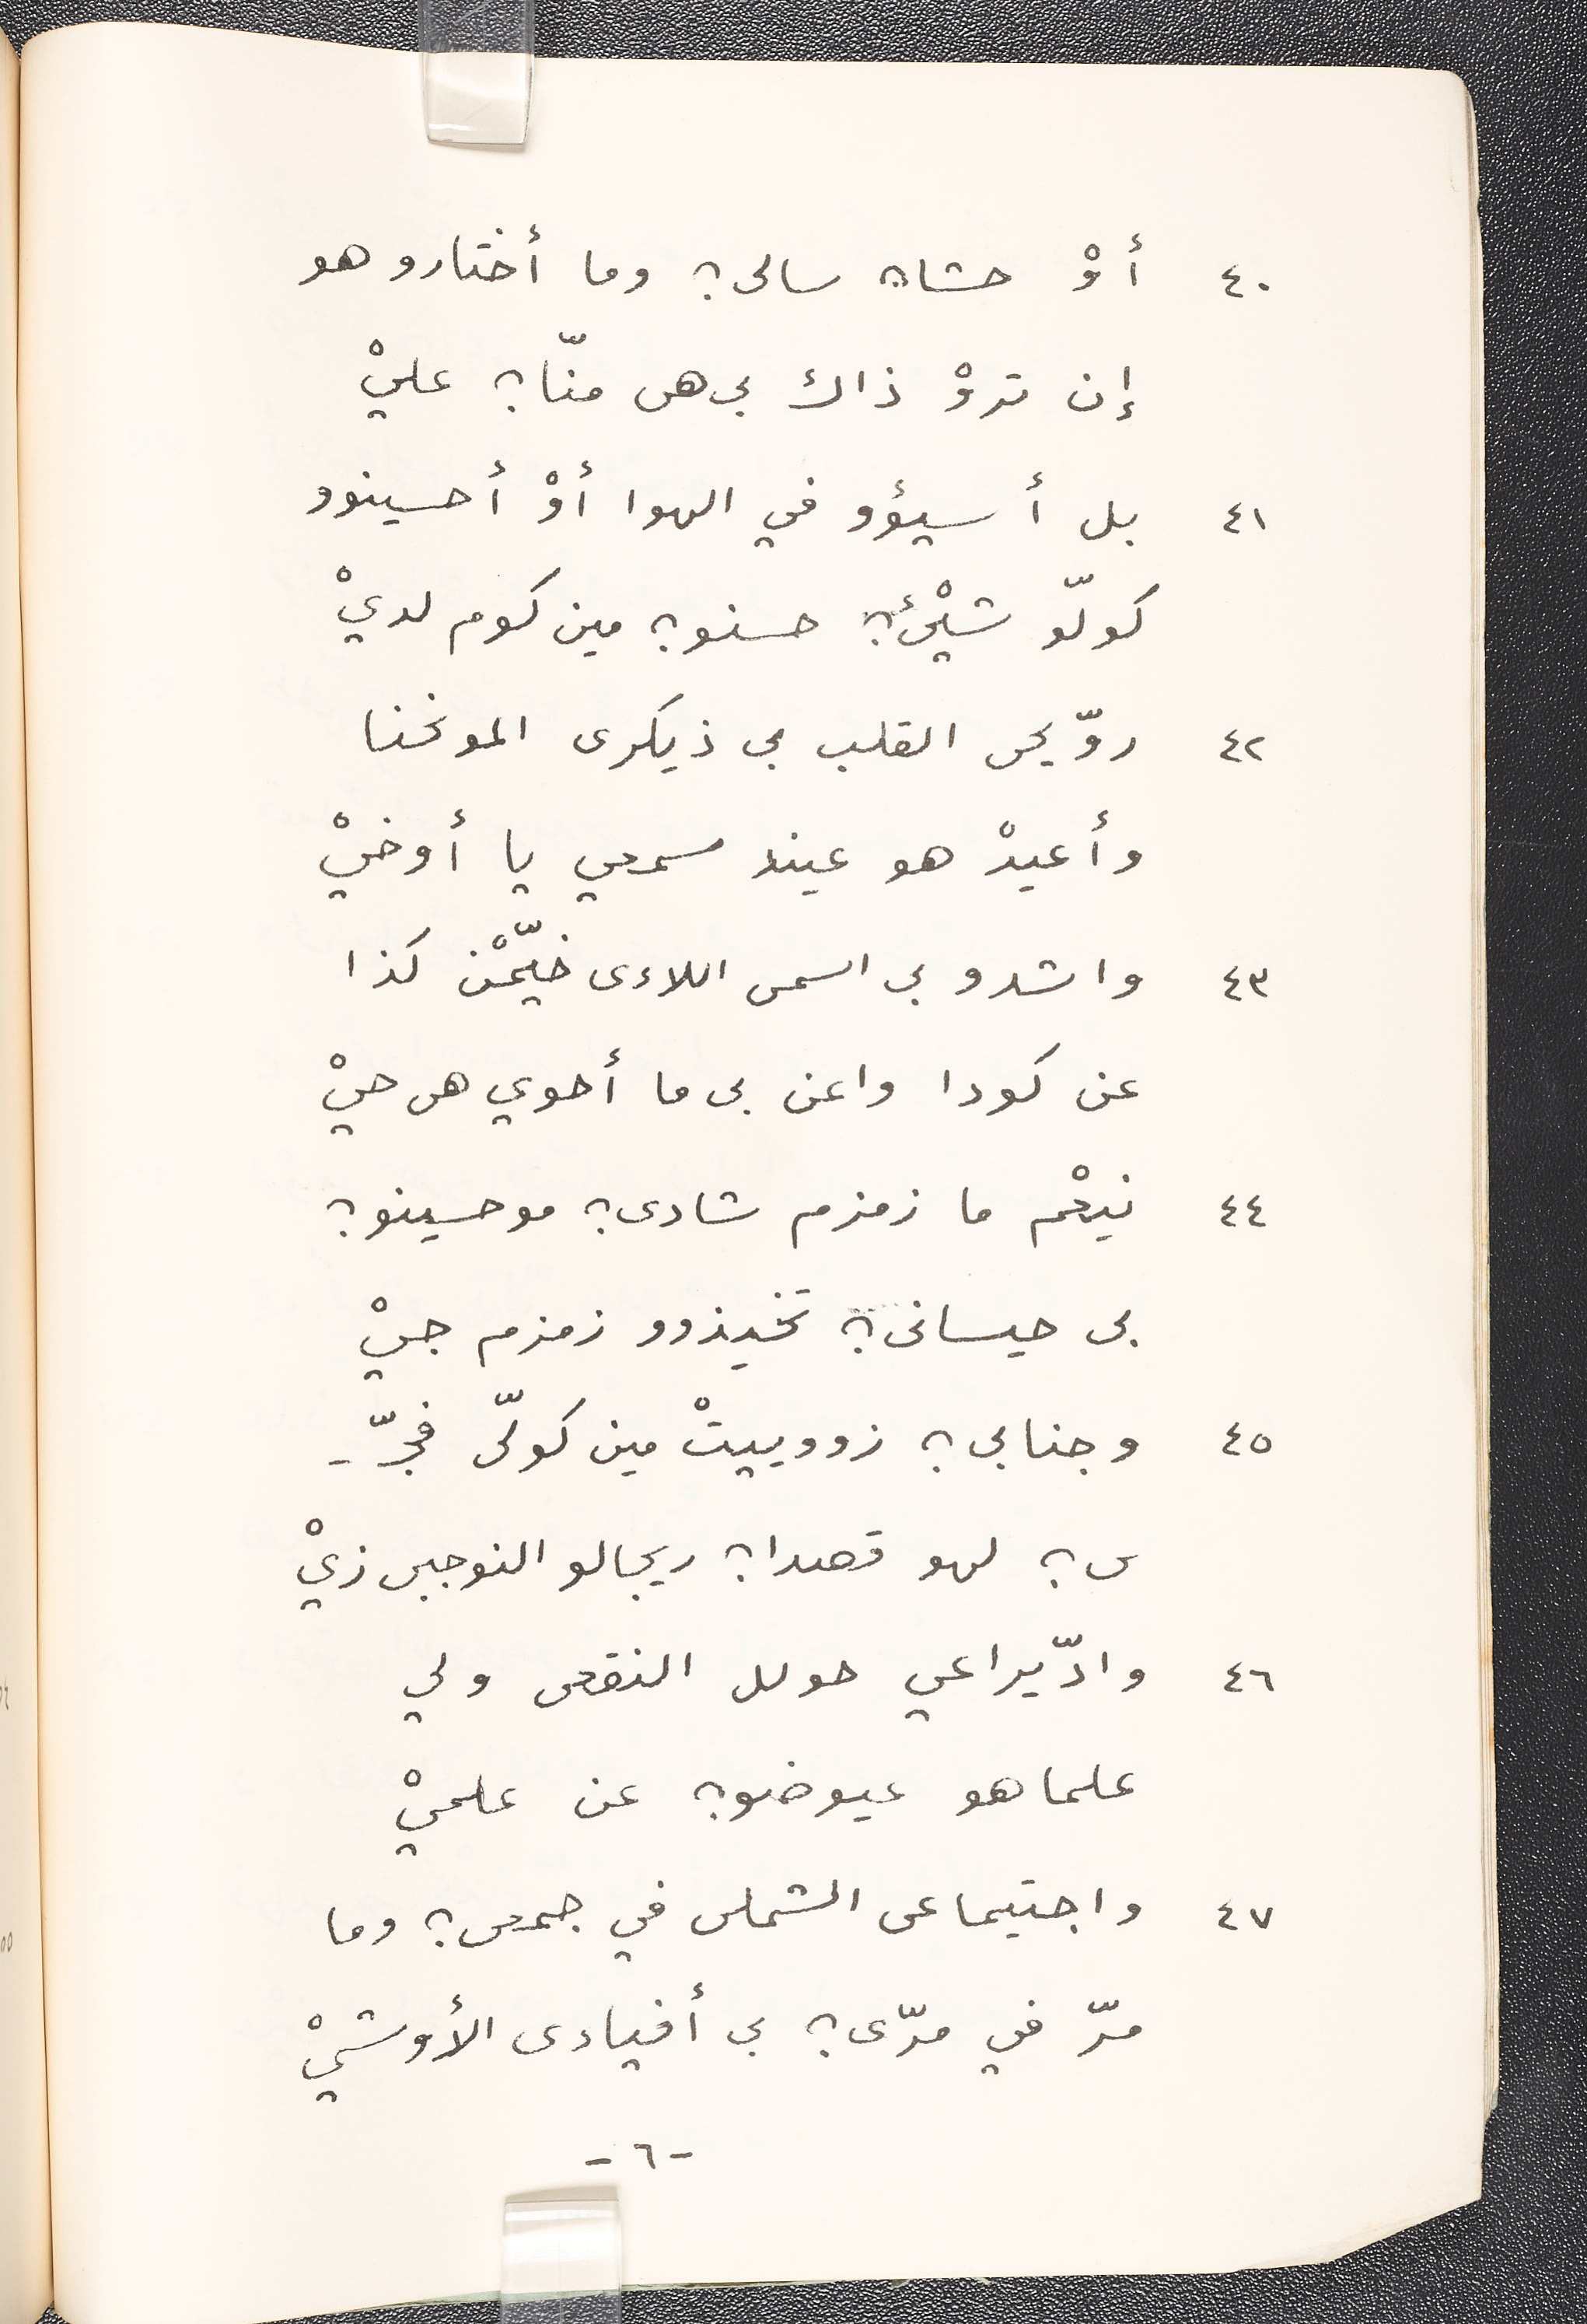 ٤٠ أوْ حشاہ؟ سالی؟ وما أختارو هو
إن تروْ ذاك بی هی منّا؟ عليْ
٤١ بل أسيؤو في الهوا أوْ أحسينوو
كولّو شيْئ؟ حسنو؟ مين كوم لديْ
٤٢ روّیحی القلب بی ذیكری المونحنا
وأعيدْ هو عيند سمعي يا أوخيْ
٤٣ واشدو بی اسمی اللاءی خيّمْن كذا
عن كودا واعن بی ما أحوي هی حيْ
٤٤ نيعْم ما زمزم شادی؟ موحسينو؟
بی حيسانی؟ تخيذوو زمزم جيْ
٤٥ وجنابی؟ زوويیتْ مين كولّی فجّ -
ی؟ لهو قصدا؟ ريجالو النوجبی زيْ
٤٦ وادّيراعي حولل النقعی ولي
علماهو عيوضو؟ عن علميْ
٤٧ واجتيماعی الشملی في جمعی؟ وما
مرّ في مرّی؟ بی أفياءی الأوشيْ
- ٦ -